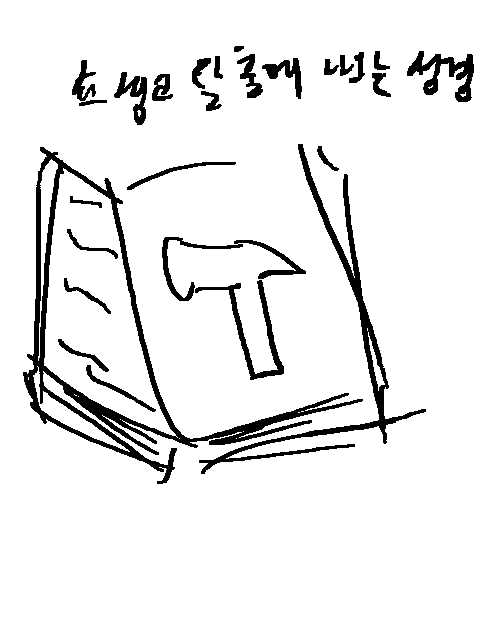 쇼생크 탈출에 나오는 성경